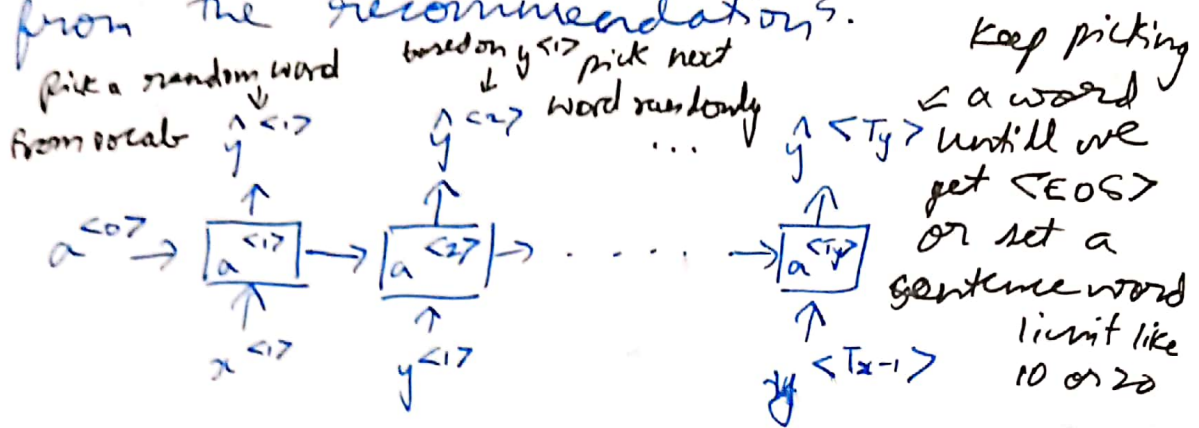 from the recommendations.
pick a random word
from vocab
based on y<1> pick next
word randomly
keep picking
← a word
untill we
get <EOS>
or set a
sentence word
limit like
10 or 20
ŷ<1> ŷ<2> ... ŷ<Ty>
a<0> → a<1> → a<2> → . . . . . → a<Ty>
x<1> y<1> y<Tx-1>